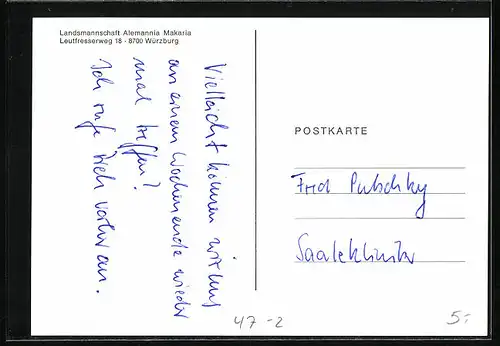 Landsmannschaft Alemannia Makaria
Leutfresserweg 18 - 8700 Würzburg
Vielleicht können wir uns
an einem Wochenende wieder
mal treffen?
Ich rufe Dich vorher an.
POSTKARTE
Fred
Saaleklinik
47-2
5,-